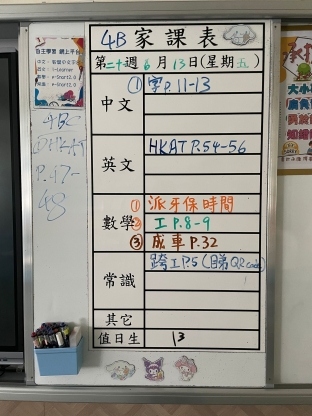 4B家課表
第二十週6月13日(星期五)
中文
① 寫P.11-13
英文
HKAT P.54-56
數學
① 派牙保時間
② 工P.8-9
③ 成車P.32
常識
跨工P.5(睇QR code)
其它
值日生
13
自主學習 網上平台
4BC
①HKAT
P.47-
48